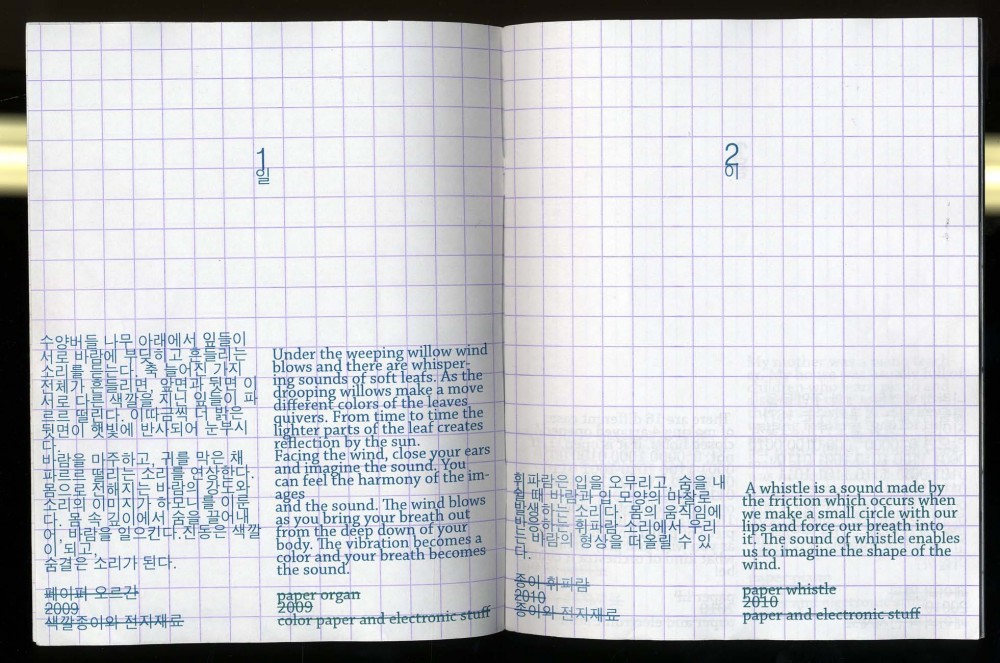 1
일
수양버들 나무 아래에서 잎들이
서로 바람에 부딪히고 흔들리는
소리를 듣는다. 축 늘어진 가지
전체가 흔들리면, 앞면과 뒷면 이
서로 다른 색깔을 지닌 잎들이 파
르르 떨린다. 이따금씩 더 밝은
뒷면이 햇빛에 반사되어 눈부시
다.
바람을 마주하고, 귀를 막은 채
파르르 떨리는 소리를 연상한다.
몸으로 전해지는 바람의 강도와
소리의 이미지가 하모니를 이룬
다. 몸 속 깊이에서 숨을 끌어내
어, 바람을 일으킨다.진동은 색깔
이 되고,
숨결은 소리가 된다.
페이퍼 오르간
2009
색깔종이와 전자재료
Under the weeping willow wind
blows and there are whisper-
ing sounds of soft leafs. As the
drooping willows make a move
different colors of the leaves
quivers. From time to time the
lighter parts of the leaf creates
reflection by the sun.
Facing the wind, close your ears
and imagine the sound. You
can feel the harmony of the im-
ages
and the sound. The wind blows
as you bring your breath out
from the deep down of your
body. The vibration becomes a
color and your breath becomes
the sound.
paper organ
2009
color paper and electronic stuff
2
이
휘파람은 입을 오무리고, 숨을 내
쉴 때 바람과 입 모양의 마찰로
발생하는 소리다. 몸의 움직임에
반응하는 휘파람 소리에서 우리
는 바람의 형상을 떠올릴 수 있
다.
종이 휘파람
2010
종이와 전자재료
A whistle is a sound made by
the friction which occurs when
we make a small circle with our
lips and force our breath into
it. The sound of whistle enables
us to imagine the shape of the
wind.
paper whistle
2010
paper and electronic stuff